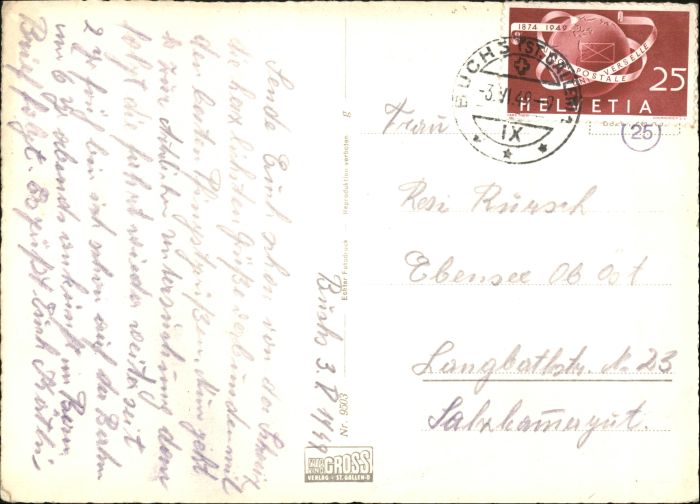 Buchs 3. V 1949
Sende Euch schon von der Schweiz
die herzlichsten Grüße verbunden mit
den besten Pfingstgrüßen. Nun geht
es zur ärztlichen untersuchung dann
folgt die fahrt wieder weiter seit
2 Uhr früh bin ich schon auf der Bahn
um 6 Uhr abends ankunft in Bern
Brief folgt. Es grüßt Euch
1874 1949
POSTALE UNIVERSELLE
25
HELVETIA
BUCHS (ST. GALLEN) 1
-3.VI.49
IX
25
Frau
Resi Rürsch
Ebensee Ob Öst
Langbathstr. N. 23
Salzkammergut.
Echter Fotodruck - Reproduktion verboten g
Nr. 9503
GROSS
VERLAG - ST. GALLEN-O